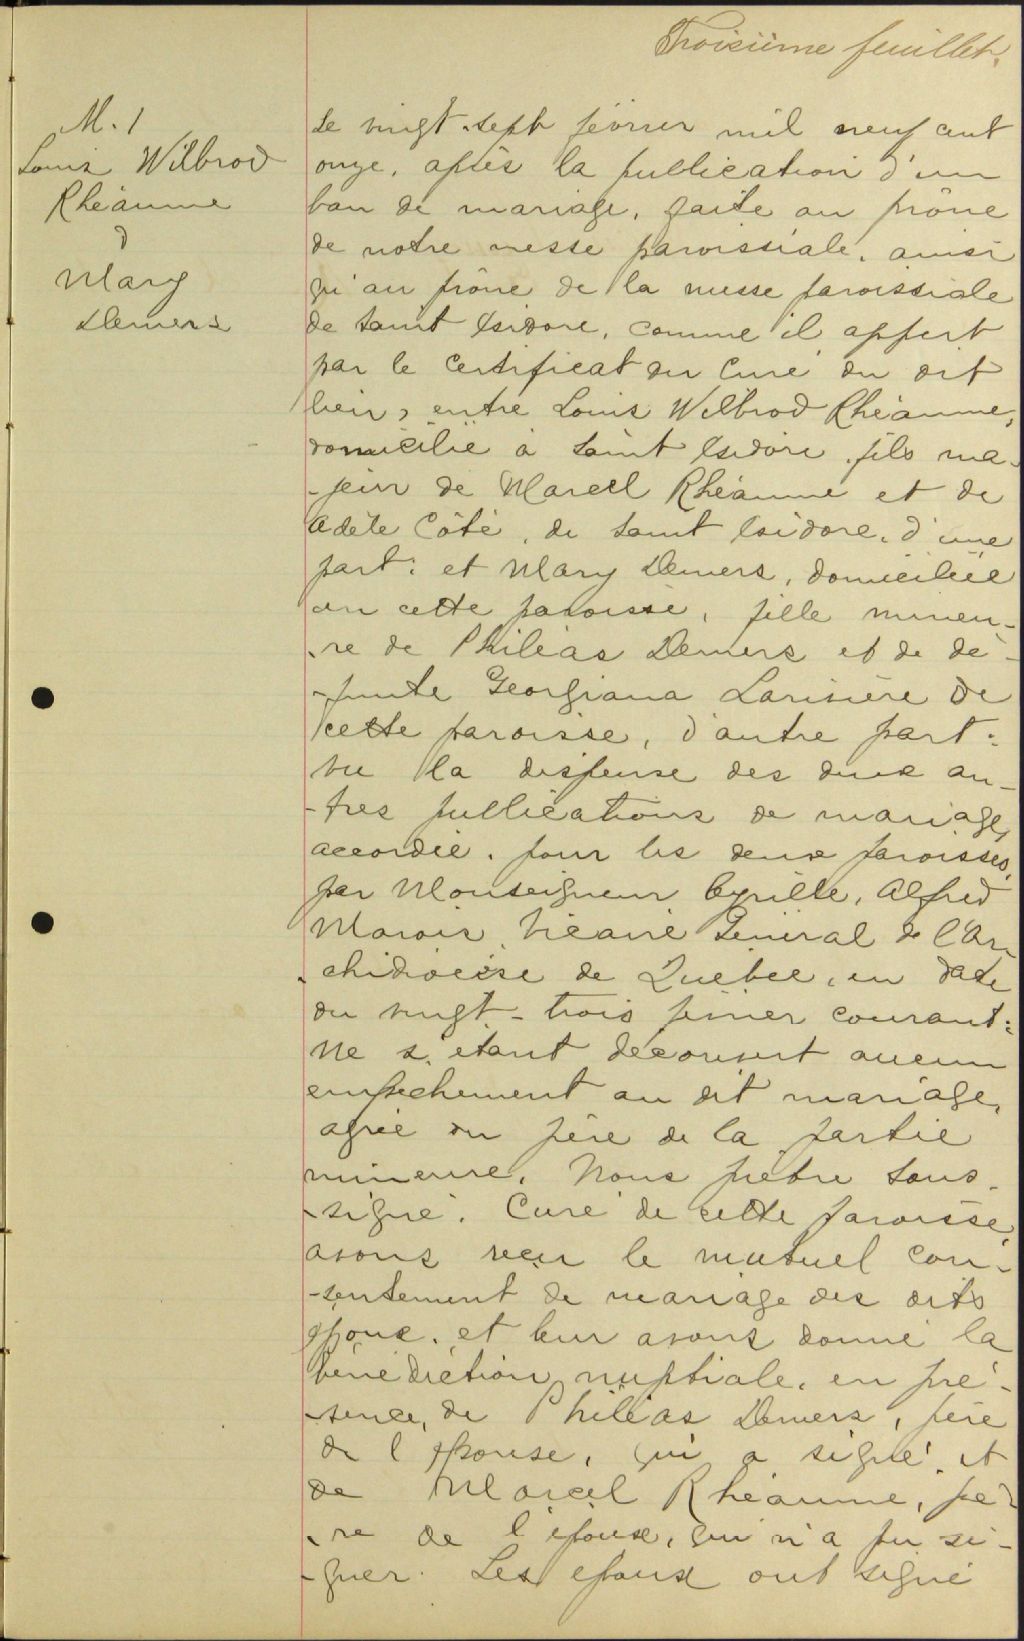 Troisième feuillet.
M. 1
Louis Wilbrod
Rhéaume
&
Mary
Demers
Le vingt-sept février mil neuf cent
onze, après la publication d'un
ban de mariage, faite au prône
de notre messe paroissiale, ainsi
qu'au prône de la messe paroissiale
de Saint Isidore, comme il appert
par le certificat du Curé du dit
lieu, entre Louis Wilbrod Rhéaume,
domicilié à Saint Isidore, fils ma-
-jeur de Marcel Rhéaume et de
Adèle Côté, de Saint Isidore, d'une
part: et Mary Demers, domiciliée
en cette paroisse, fille mineu-
-re de Philéas Demers et de dé-
-funte Georgiana Larivière de
cette paroisse, d'autre part:
vu la dispense des deux au-
-tres publications de mariage,
accordée, pour les deux paroisses,
par Monseigneur Cyrille, Alfred
Marois, Vicaire Général de l'Ar-
-chidiocèse de Québec, en date
du vingt-trois février courant:
ne s'étant découvert aucun
empêchement au dit mariage,
agréé du père de la partie
mineure, Nous prêtre sous-
-signé, Curé de cette paroisse,
avons reçu le mutuel con-
-sentement de mariage des dits
époux, et leur avons donné la
bénédiction nuptiale, en pré-
-sence, de Philéas Demers, père
de l'épouse, qui a signé, et
de Marcel Rhéaume, pè-
-re de l'époux, qui n'a pu si-
-gner. Les époux ont signé